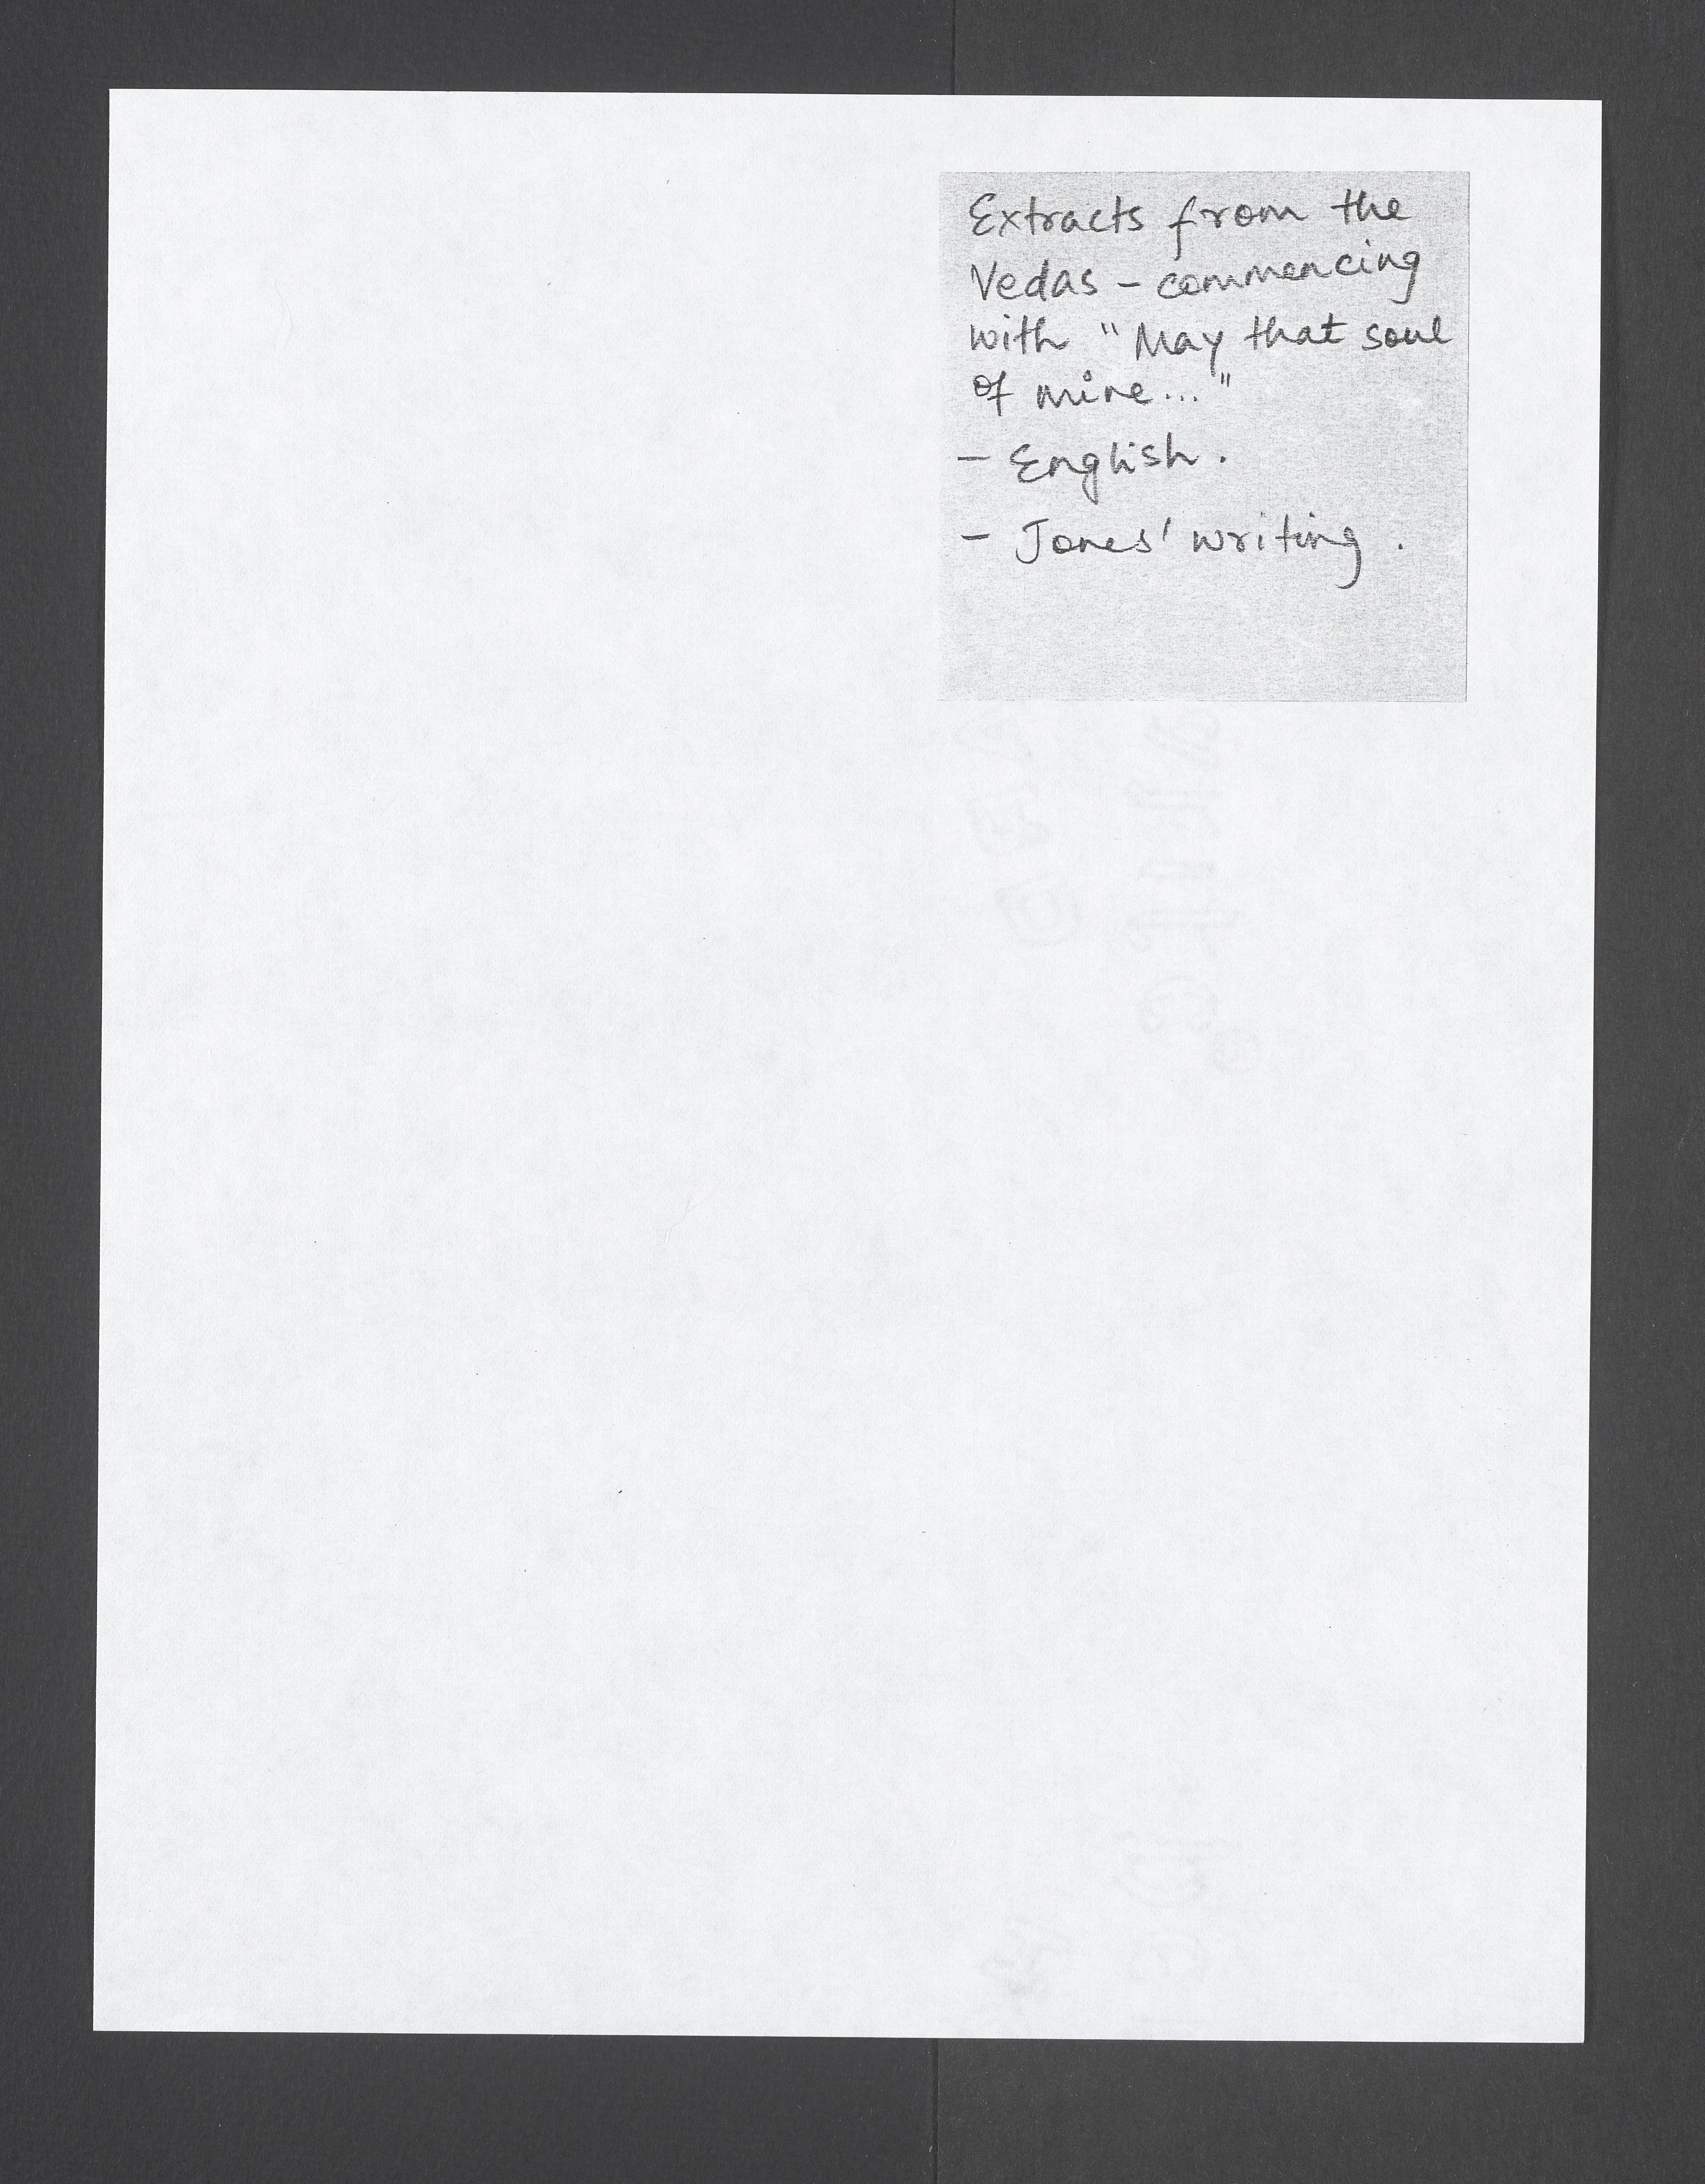 Extracts from the
Vedas – commencing
with "May that soul
of mine..."
– English.
– Jones' writing.